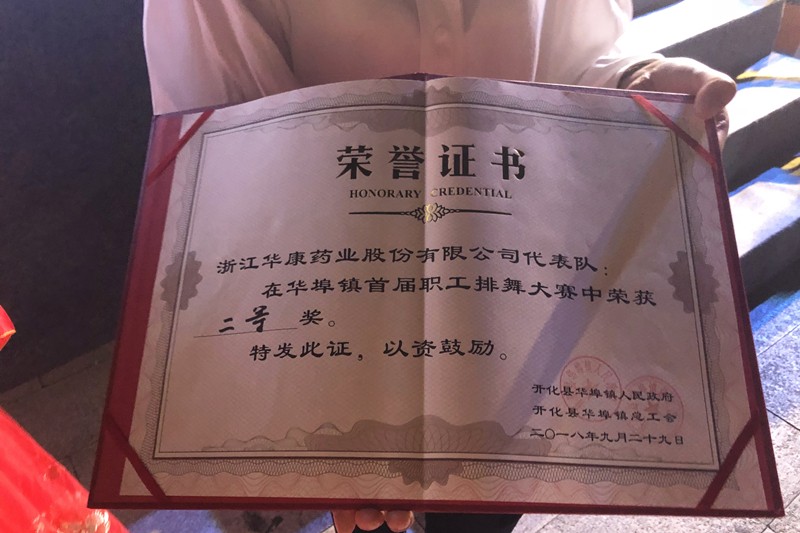 荣誉证书
HONORARY CREDENTIAL
浙江华康药业股份有限公司代表队：
在华埠镇首届职工排舞大赛中荣获
二等奖。
特发此证，以资鼓励。
开化县华埠镇人民政府
开化县华埠镇总工会
二〇一八年九月二十九日